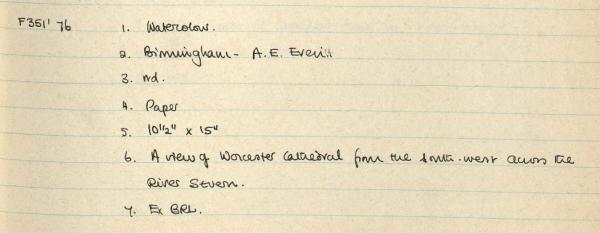 F351' 76 1. Watercolour.
2. Birmingham - A.E. Everitt
3. nd.
4. Paper
5. 10½" x 15"
6. A view of Worcester Cathedral from the south-west across the
River Severn.
7. Ex BRL.